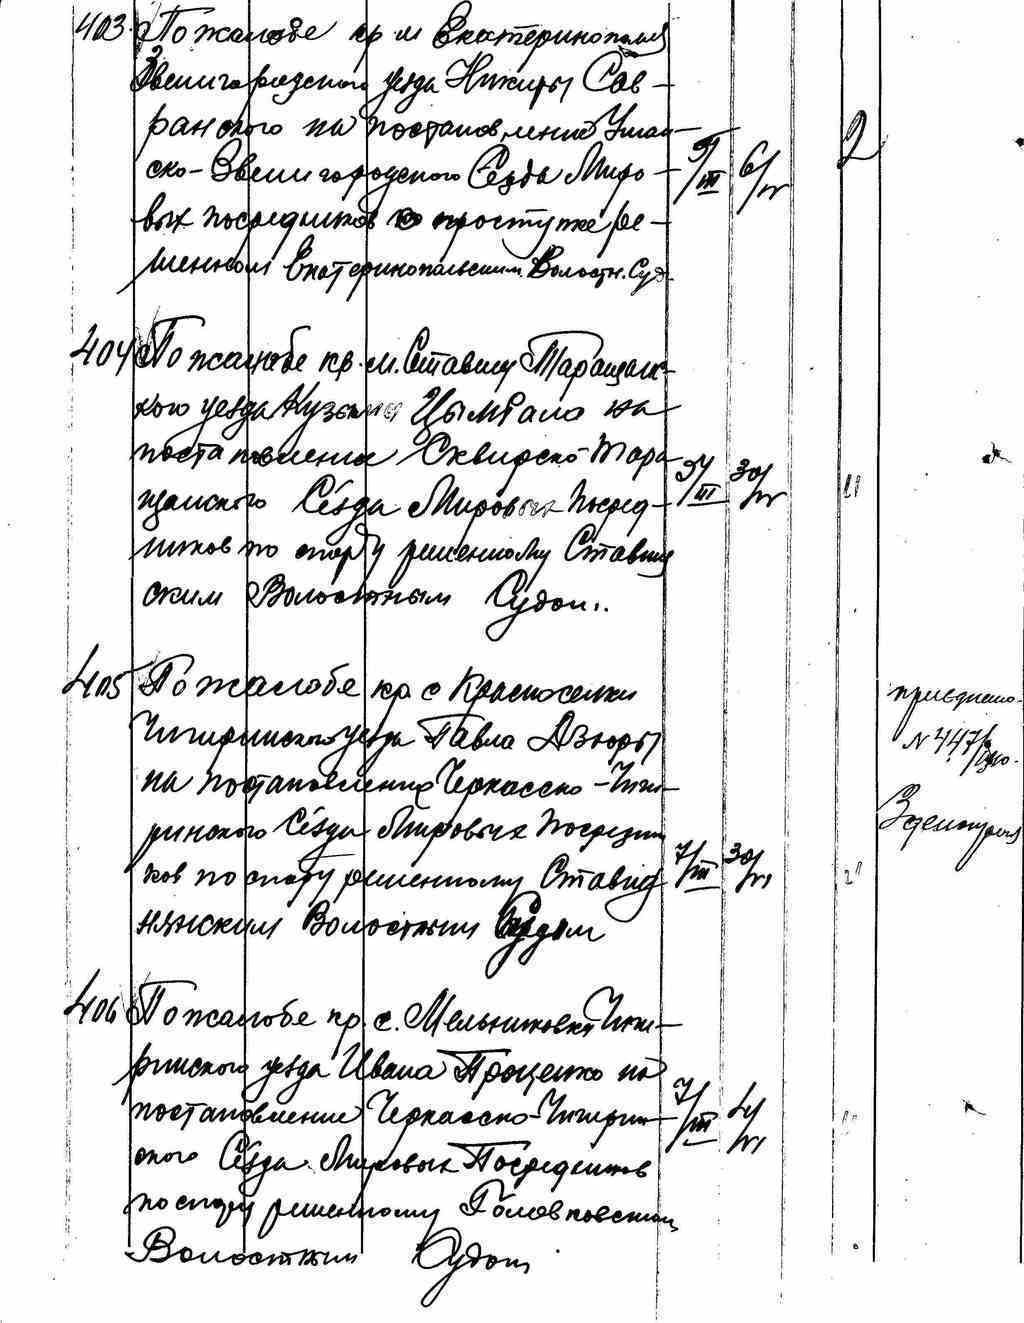 403 По жалобе кр м Екатеринополя
Звенигородского уезда Никиры Сав-
ранского на постановление Уман-
ско-Звенигородского Съезда Миро- 5/III 6/IV 2
вых посредников о проступке ре-
шенном Екатеринопольским Волостн. Суд.
404 По жалобе кр. м. Ставищ Таращанс-
кого уезда Кузьмы Цымбала на
постановление Сквирско-Тара
щанского Съезда Мировых Посред- 5/III 30/IV "
ников по спору решенному Ставищ
ским Волостным Судом.
405 По жалобе кр с Красноселки
Чигиринского уезда Павла Дзюры
на постановление Черкасско-Чиги-
ринского Съезда Мировых Посредни
ков по спору решенному Ставид 7/III 30/VI "
нянским Волостным Судом
присдиено
N 447/
3 дела
406 По жалобе кр. с. Мельниковки Чиги-
ринского уезда Ивана Проценко на
постановление Черкасско-Чигирин- 7/III 4/VI "
ского Съезда Мировых Посредников
по спору решенному Головковским
Волостным Судом